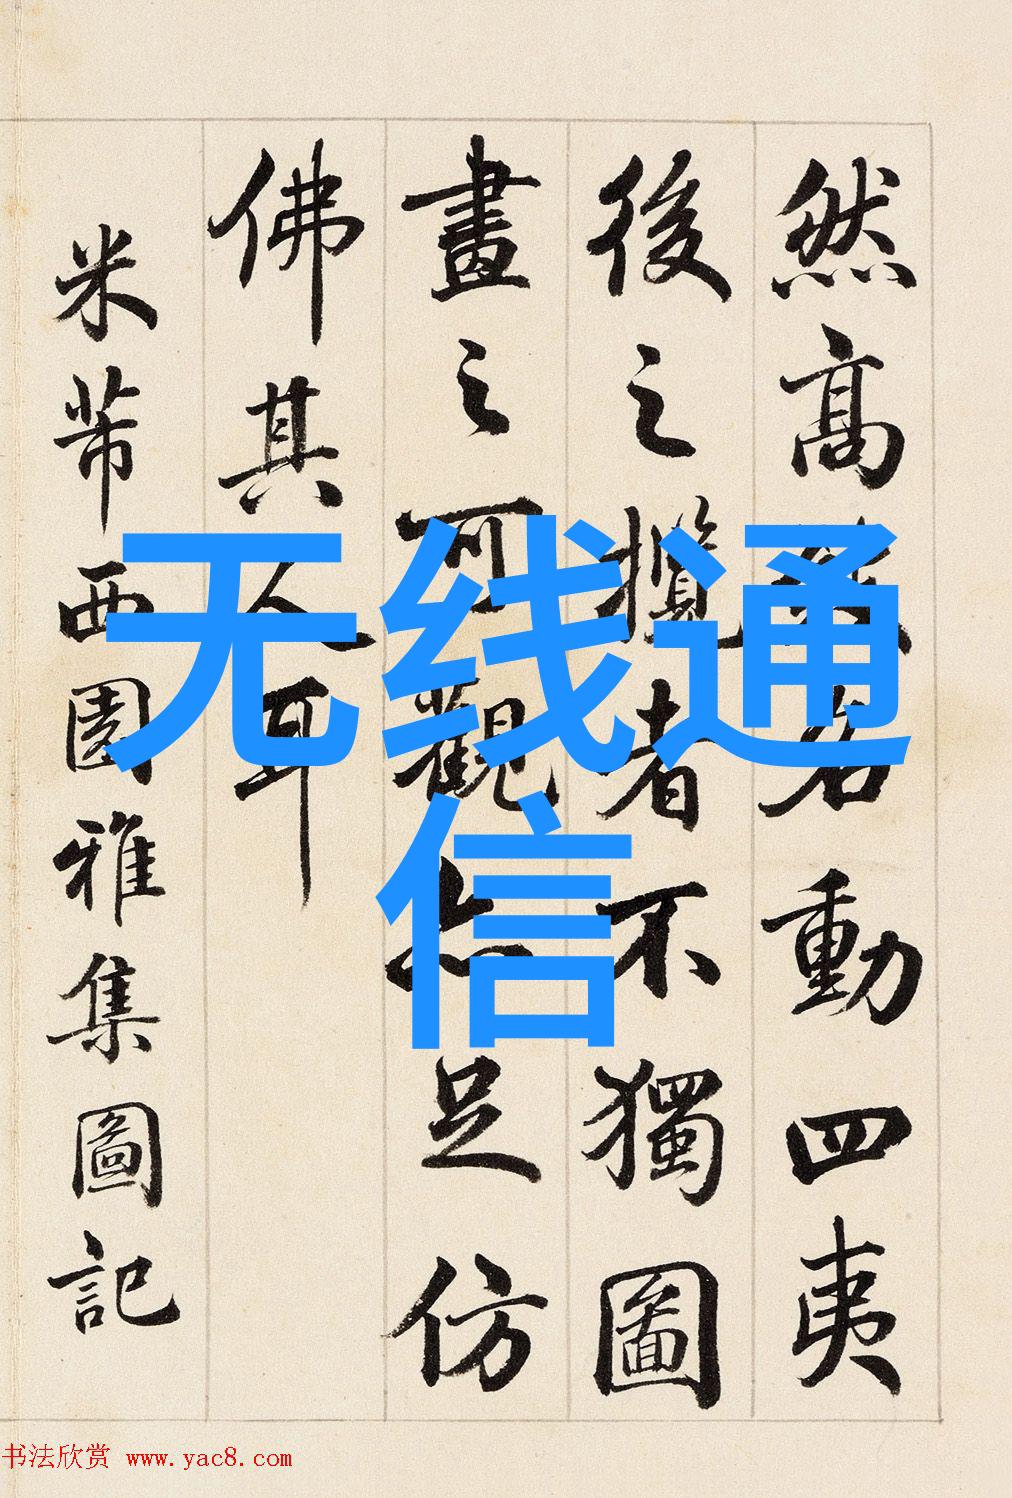 然高名動四夷
後之攬者不獨圖
畫之可觀亦足仿
佛其人耳
米芾西園雅集圖記
无线通
信
书法欣赏 www.yac8.com